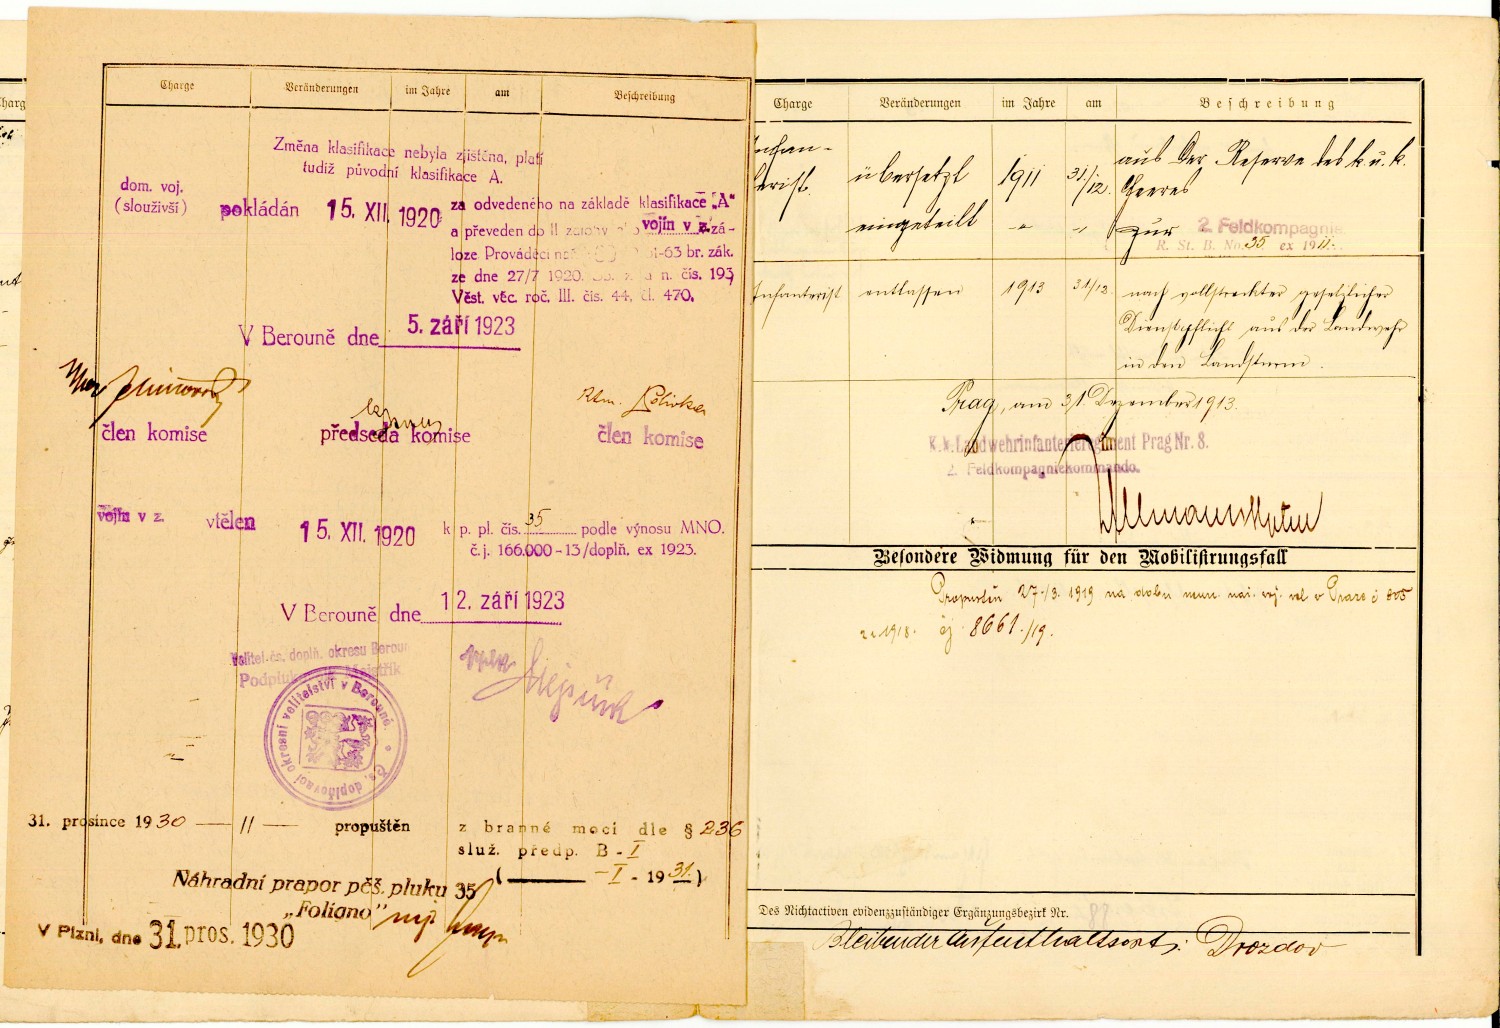 Charge Veränderungen im Jahre am Beschreibung
Změna klasifikace nebyla zjištěna, platí
tudíž původní klasifikace A.
dom. voj.
(sloužívší) pokládán 15. XII. 1920 za odvedeného na základě klasifikace „A“
a převeden do II zálohy vojín v z. zá-
loze. Prováděcí 63 br. zák.
ze dne 27/7 1920. n. čís. 193
Věst. věc. roč. III. čís. 44. čl. 470.
V Berouně dne 5. září 1923
člen komise předseda komise člen komise
vojín v z. vtělen 15. XII. 1920 k p. pl. čís. 35 podle výnosu MNO.
č. j. 166.000-13/doplň. ex 1923.
V Berouně dne 12. září 1923
Velitel čs. doplň. okresu Beroun
Čs. doplňovací okresní velitelství v Berouně.
31. prosince 1930 — // — propuštěn z branné moci dle § 236
služ. předp. B-I
( — -I- 1931.)
Náhradní prapor pěš. pluku 35
„Foligno“
V Plzni, dne 31. pros. 1930
Charge
Charge Veränderungen im Jahre am Beschreibung
Infan-
terist. übersetzt 1911 31./12. aus der Reserve des k. u. k.
Heeres
eingeteilt - " - " zur 2. Feldkompagnie
R. St. B. No. 35 ex 1911.
Infanterist entlassen 1913 31/12. nach vollstreckter gesetzlicher
Dienstpflicht aus der Landwehr
in den Landsturm.
Prag, am 31. Dezember 1913.
K. k. Landwehrinfanterieregiment Prag Nr. 8.
2. Feldkompagniekommando.
Besondere Widmung für den Mobilisirungsfall
Propuštěn 27./3. 1919 na dobu v Praze č
z r. 1918. čj. 8661./19.
Des Nichtactiven evidenzzuständiger Ergänzungsbezirk Nr.
Bleibender Aufenthaltsort: Drozdov